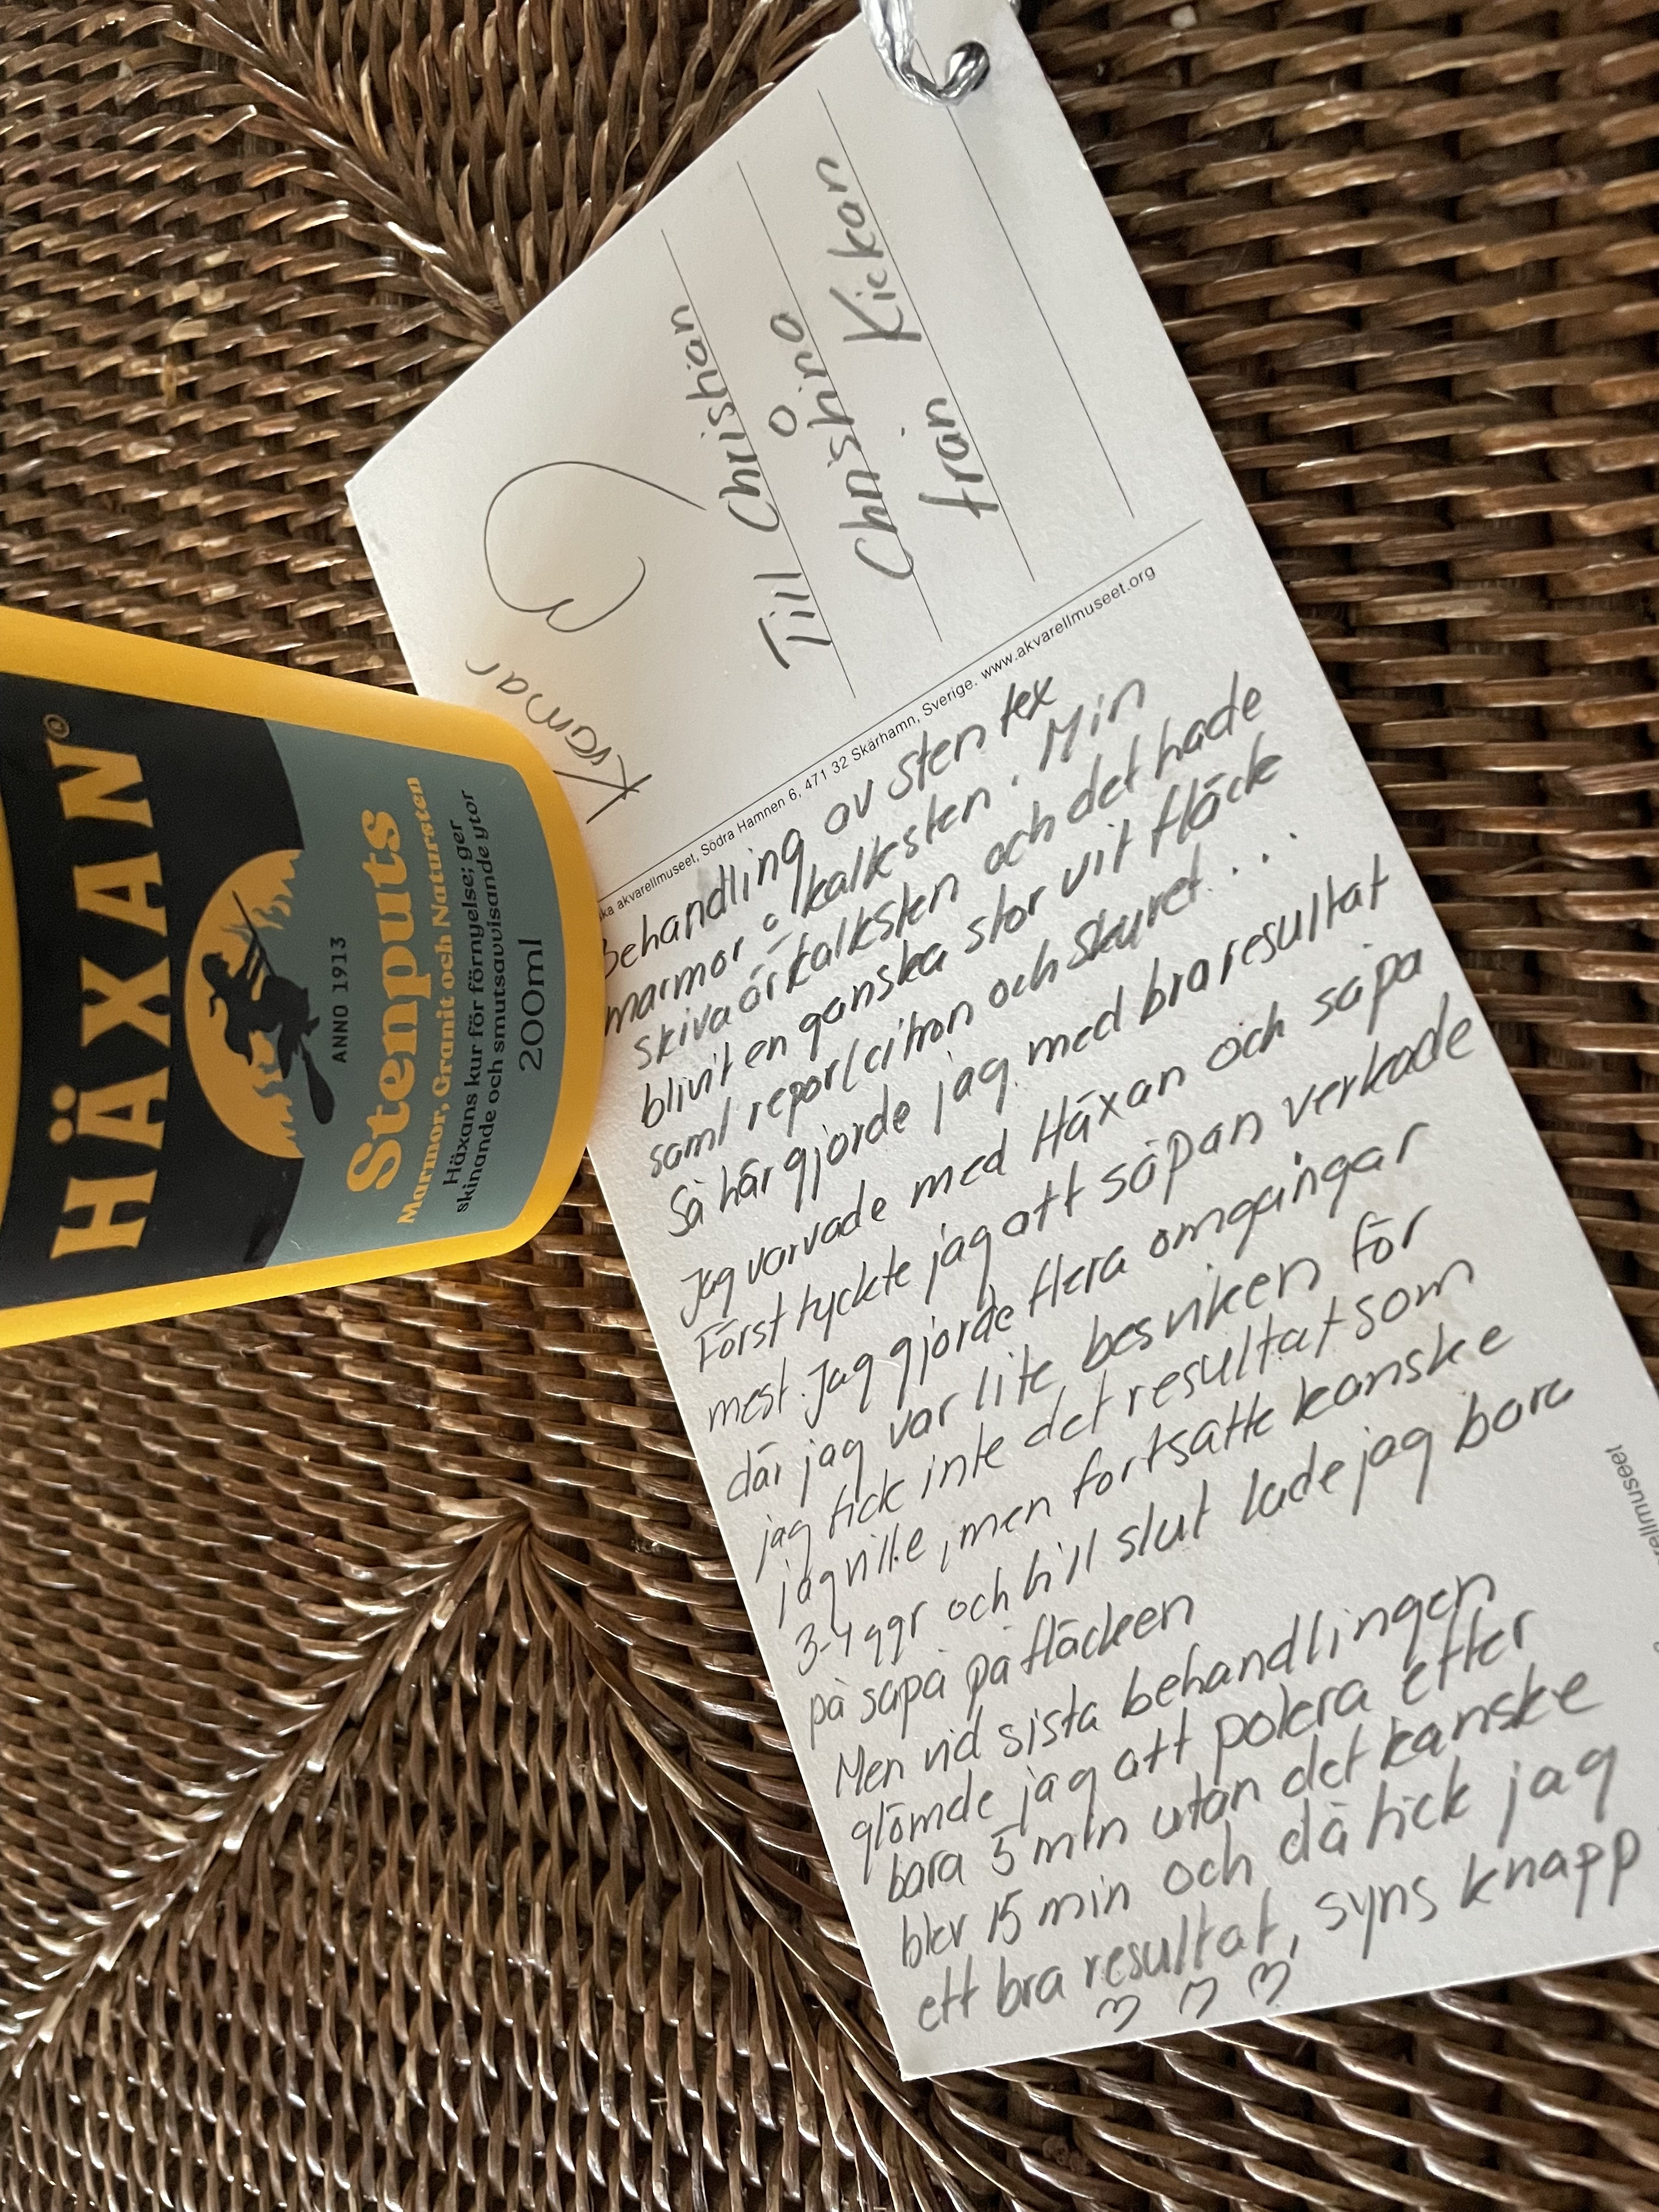 HÄXAN®
ANNO 1913
Stenputs
Marmor, Granit och Natursten
Häxans kur för förnyelse; ger
skinande och smutsavvisande ytor
200ml
Kramar
Till Christian
o
Christina
från Kickan
ka akvarellmuseet, Södra Hamnen 6, 471 32 Skärhamn, Sverige. www.akvarellmuseet.org
Behandling av sten tex
marmor o kalksten. Min
skiva är kalksten och det hade
blivit en ganska stor vit fläck
saml repor/citron och skuret...
Så här gjorde jag med bra resultat
Jag varvade med Häxan och såpa
Först tyckte jag att såpan verkade
mest. Jag gjorde flera omgångar
där jag var lite besviken för
jag fick inte det resultat som
jag ville, men fortsatte kanske
3-4 ggr och till slut lade jag bara
på såpa på fläcken
Men vid sista behandlingen
glömde jag att polera efter
bara 5 min utan det kanske
blev 15 min och då fick jag
ett bra resultat, syns knapp
rellmuseet